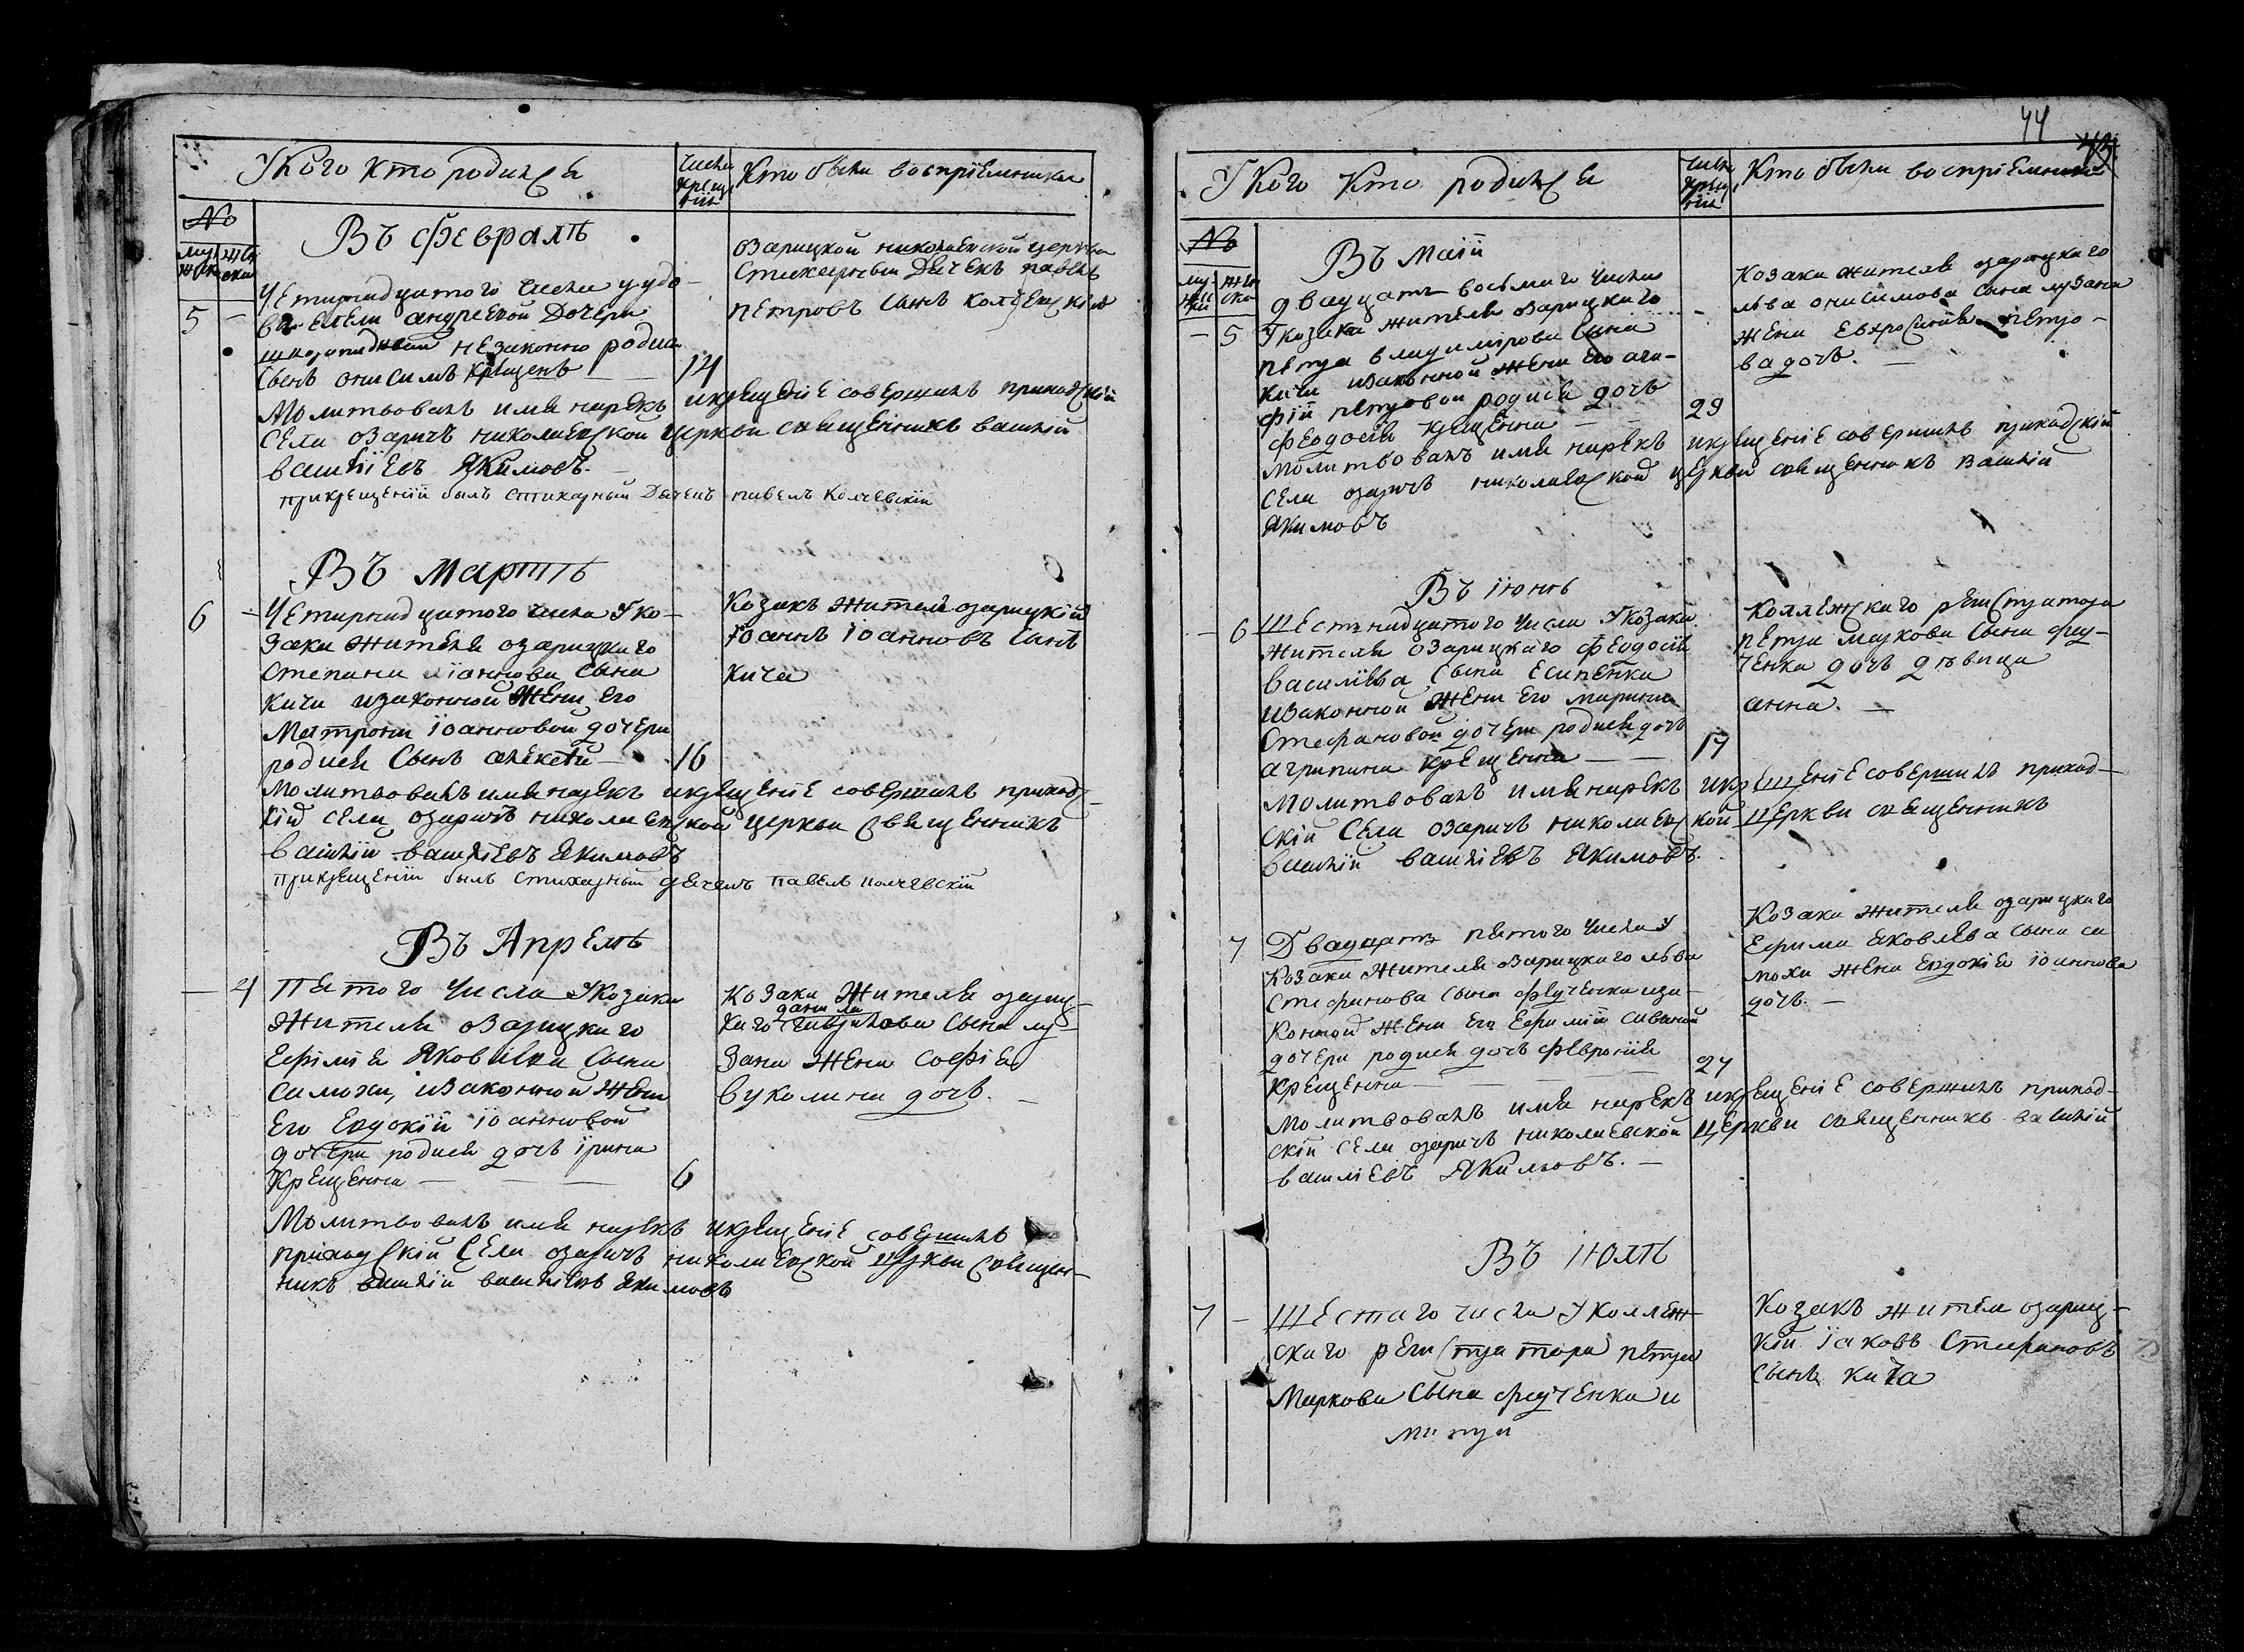 У Кого кто родился
Числа крещенія
Кто были воспріемники
№
мужеска
женска
Въ Февралѣ
5 –
Четирнадцатого числа у удо-
вы
андреевой Дочери
незаконно родися
Сынъ онисимъ крещенъ
14
озарицкой николаевской церкви
Стихарный Дячекъ павелъ
петровъ Сынъ Колчевскій
Молитвовалъ имя нарекъ икрещеніе совершилъ приходскій
Села озаричъ николаевской церкви священникъ василій
василіевъ Якимовъ.
прикрещеніи былъ стихарный Дячекъ павелъ Колчевскій
Въ Мартѣ
6 –
Четирнадцатого числа У ко-
зака жителя озарицкого
Степана іоаннова сына
Кичи изаконной жени его
Матрони іоанновой дочери
родися Сынъ алексѣй –
16
Козакъ житель озарицкій
іоаннъ іоанновъ Сынъ
Кича
Молитвовалъ имя нарекъ икрещеніе совершилъ приход-
кій села озаричъ николаевской церкви священникъ
василій василіевъ Якимовъ
прикрещеніи былъ стихарный дячекъ павелъ колчевскій
Въ Апрелѣ
– 4
Пятого Числа У козака
Жителя озарицкаго
Ефіміа Яковлева сына
Самохи, изаконной жени
Его Евдокіи іоанновой
дочери родися дочь ірина
Крещенна –
6
Козака Жителя озариц-
данила
каго Гаврилова Сына лу-
зана жена Софія
вуколина дочь. –
Молитвовалъ имя нарекъ икрещеніе совершилъ
приходскій Села озаричъ николаевской церкви священ-
никъ василій василіевъ Якимовъ
44
У Кого Кто родился
Числа крещенія
Кто были воспріемники
№
мужеска
женска
Въ Маіи
– 5
двадцать восьмаго числа
У козака жителя озарицкаго
петра владимірова сина
Кичи изаконной жени его ага-
фіи петровои родися дочь
феодосія крещенна
29
Козака жителя озарицкаго
льва онисимова сина лузана
жена евхросинія петро-
ва дочь. –
молитвовалъ имя нарекъ икрещеніе совершилъ приходскій
села озаричъ николаевской церкви священникъ василій
Якимовъ
Въ іюнѣ
– 6
Шестнадцатого числа У козака
жителя озарицкаго феодосія
василіева сына Есипенка
изаконной жени его марини
Стефановой дочери родися дочь
агрипина крещенна – –
17
Коллежскаго регистратора
петра маркова сына фру-
ченка дочь дѣвица
анна. –
Молитвовалъ имя нарекъ икрещеніе совершилъ приход-
скій Села озаричъ николаевской церкви священникъ
василій василіевъ Якимовъ.
7
Двадцать пятого числа У
козака Жителя озарицкаго льва
Стефанова сына фрученка иза-
конной жени его Ефиміи савиной
дочери родися дочь февронія
крещенна
27
Козака жителя озарицкаго
Ефима яковлева сина са
мохи жена евдокія іоаннова
дочь. –
Молитвовалъ имя нарекъ икрещеніе совершилъ приход-
скій села озаричъ николаевской церкви священникъ василій
василіевъ Якимовъ. –
Въ іюлѣ
7 –
Шестаго числа У коллеж-
скаго регистратора петра
Маркова Сына фрученка и
Козакъ житель озариц-
кій іаковъ Стефановъ
Сынъ кича